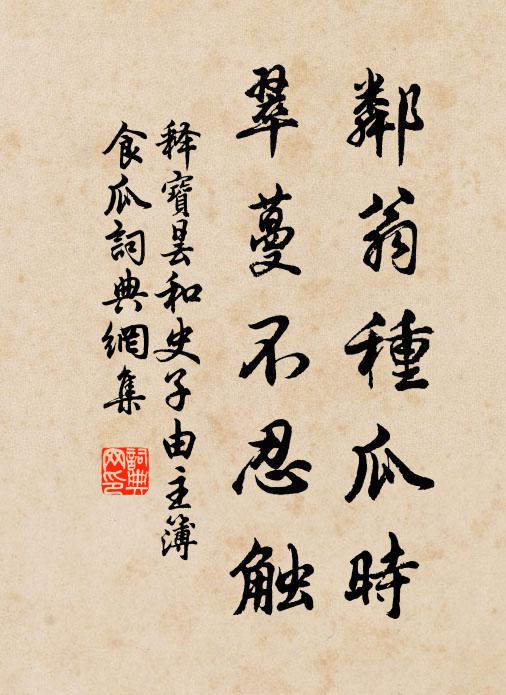 鄰翁種瓜時
翠蔓不忍触
释寶曇和史子由主簿
食瓜詞典網集
詞典
网印